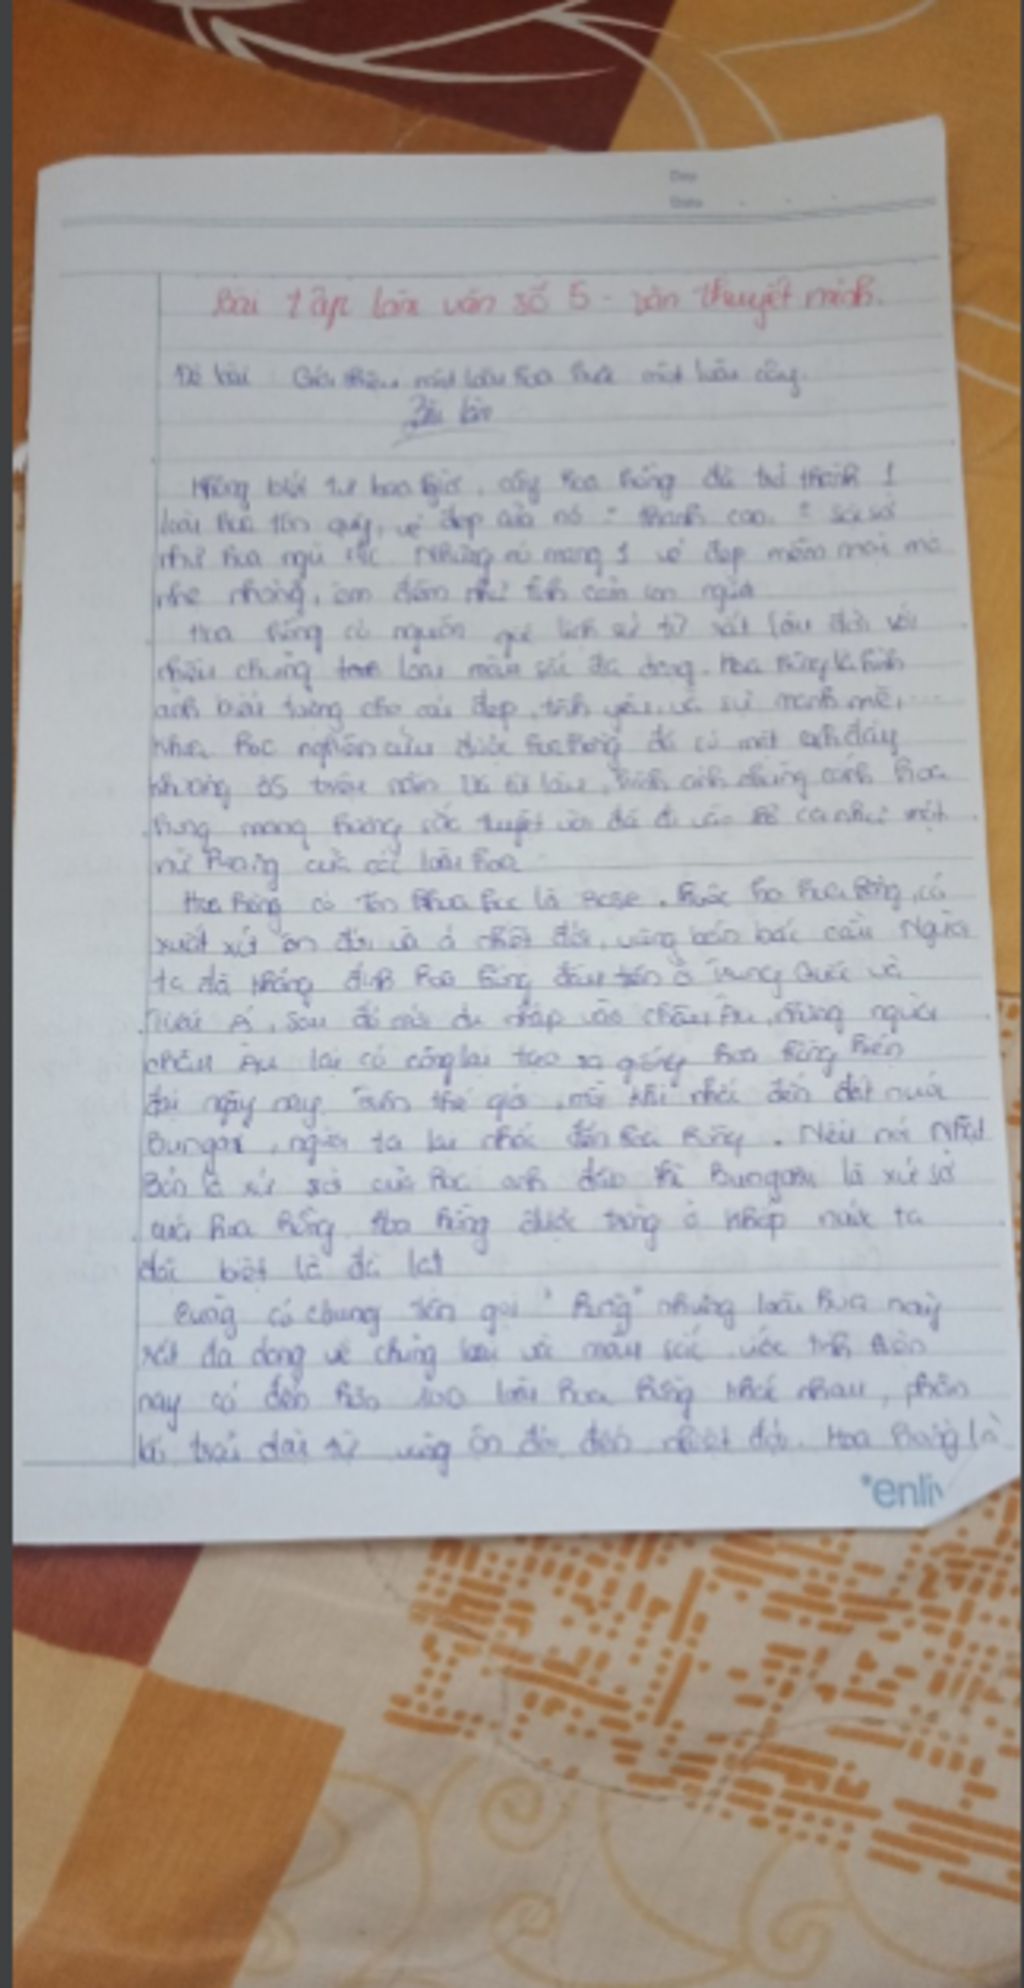 Day
Date
Bài tập làm văn số 5 - văn thuyết minh.
Đề bài Giới thiệu một loài hoa hoặc một loài cây.
Bài làm
Không biết từ bao giờ, cây hoa hồng đã trở thành 1
loài hoa tôn quý, vẻ đẹp của nó thanh cao,
như hoa ngũ sắc. Nhưng nó mang 1 vẻ đẹp mềm mại mà
nhẹ nhàng, êm đềm như tình cảm con người
Hoa hồng có nguồn lịch sử từ rất lâu đời với
nhiều chủng loại màu sắc đa dạng. Hoa hồng là hình
ảnh biểu tượng cho cái đẹp, tình yêu và sự mạnh mẽ, ...
khoa học nghiên cứu được hoa hồng đã có mặt đây
khoảng 35 triệu năm Và từ lâu, hình ảnh những cánh hoa
hồng mang hương sắc tuyệt vời đã đi vào ca như một
nữ hoàng của các loài hoa
Hoa hồng có tên khoa học là Rose, thuộc họ hoa hồng, có
xuất xứ ôn đới và á nhiệt đới, vùng bán bắc cầu Người
ta đã khẳng định hoa hồng đầu tiên ở Trung Quốc và
Á, sau đó mới du nhập vào châu Âu, những người
châu Âu lại có công lai tạo ra giống hoa hồng hiện
đại ngày nay. Trên thế giới, mỗi khi nhắc đến đất nước
Bungari, người ta lại nhắc đến hoa hồng. Nếu nói Nhật
Bản là xứ sở của hoa anh đào thì Bungari là xứ sở
của hoa hồng Hoa hồng được trồng ở khắp nước ta
đặc biệt là đà lạt
Cùng có chung tên gọi "hồng" nhưng loài hoa này
rất đa dạng về chủng loại và màu sắc ước tính hiện
nay có đến hơn 100 loài hoa hồng khác nhau, phân
bố trải dài từ vùng ôn đới đến nhiệt đới. Hoa hồng là
enliv